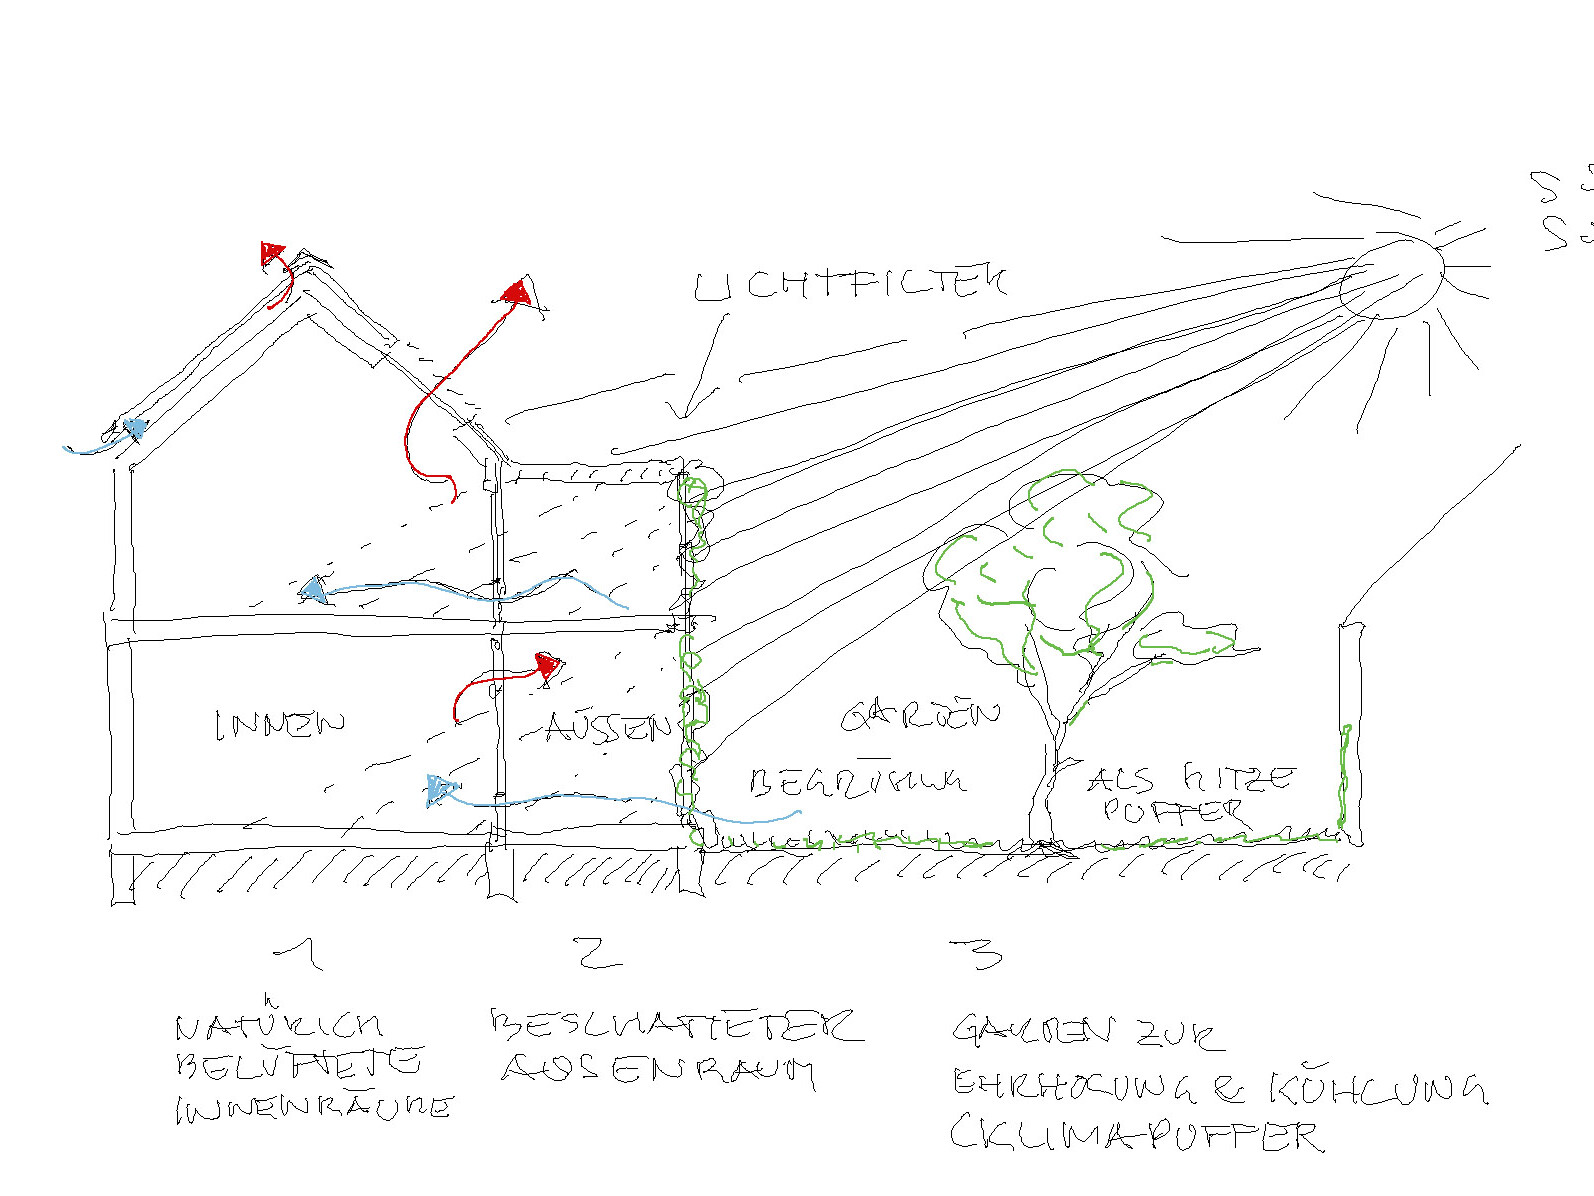 LICHTFILTER
INNEN
AUSSEN
GARDEN
BEGRÜNUNG
ALS HITZE
PUFFER
1
2
3
NATÜRLICH
BELÜFTETE
INNENRÄUME
BESCHATTETER
AUSENRAUM
GARDEN ZUR
EHRHOLUNG & KÜHLUNG
(KLIMAPUFFER